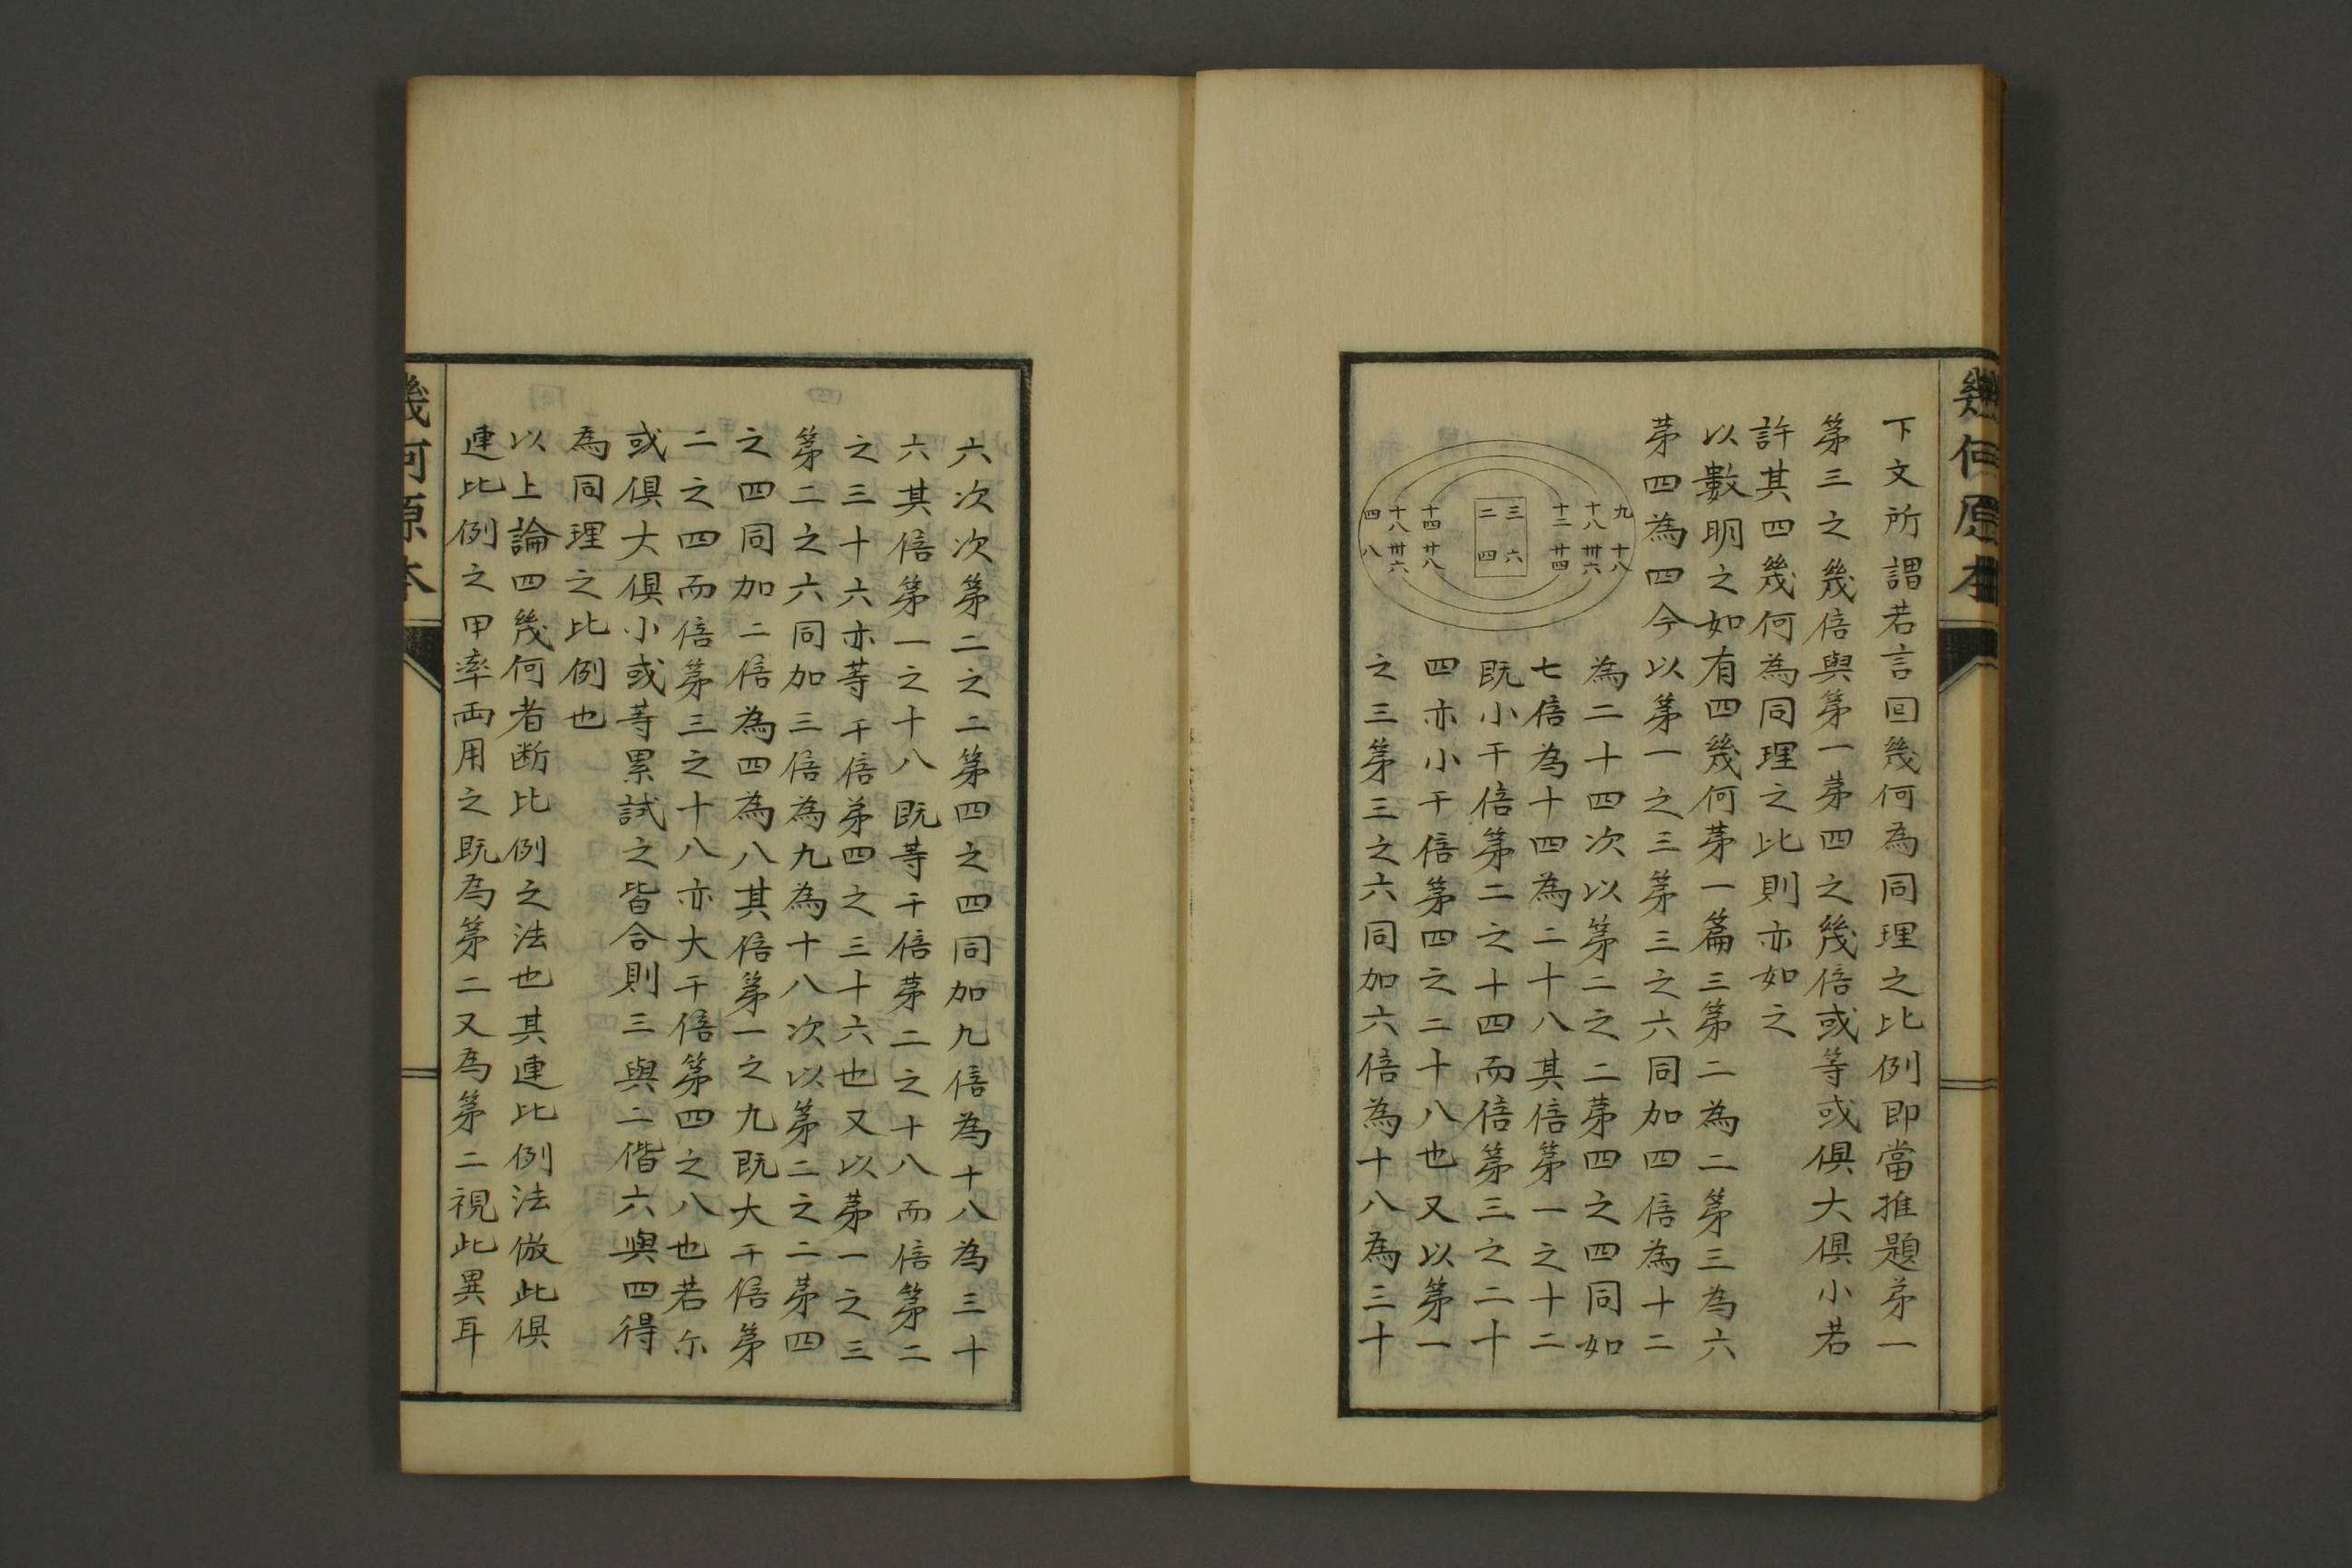 幾何原本
下文所謂若言四幾何為同理之比例即當推題第一
第三之幾倍與第一第四之幾倍或等或俱大俱小若
許其四幾何為同理之比則亦如之
以數明之如有四幾何第一篇三第二為二第三為六
第四為四今以第一之三第三之六同加四倍為十二
為二十四次以第二之二第四之四同如
七倍為十四為二十八其倍第一之十二
既小干倍第二之十四而倍第三之二十
四亦小干倍第四之二十八也又以第一
之三第三之六同加六倍為十八為三十
九 十八
十八 卅六
十二 廿四
三 六
二 四
十四 廿八
十八 卅六
四 八
六次次第二之二第四之四同加九倍為十八為三十
六其倍第一之十八既等干倍第二之十八而倍第二
之三十六亦等干倍第四之三十六也又以第一之三
第二之六同加三倍為九為十八次以第二之二第四
之四同加二倍為四為八其倍第一之九既大干倍第
二之四而倍第三之十八亦大干倍第四之八也若尓
或俱大俱小或等累試之皆合則三與二偕六與四得
為同理之比例也
以上論四幾何者断比例之法也其連比例法倣此俱
連比例之甲率両用之既為第二又為第二視此異耳
幾何原本